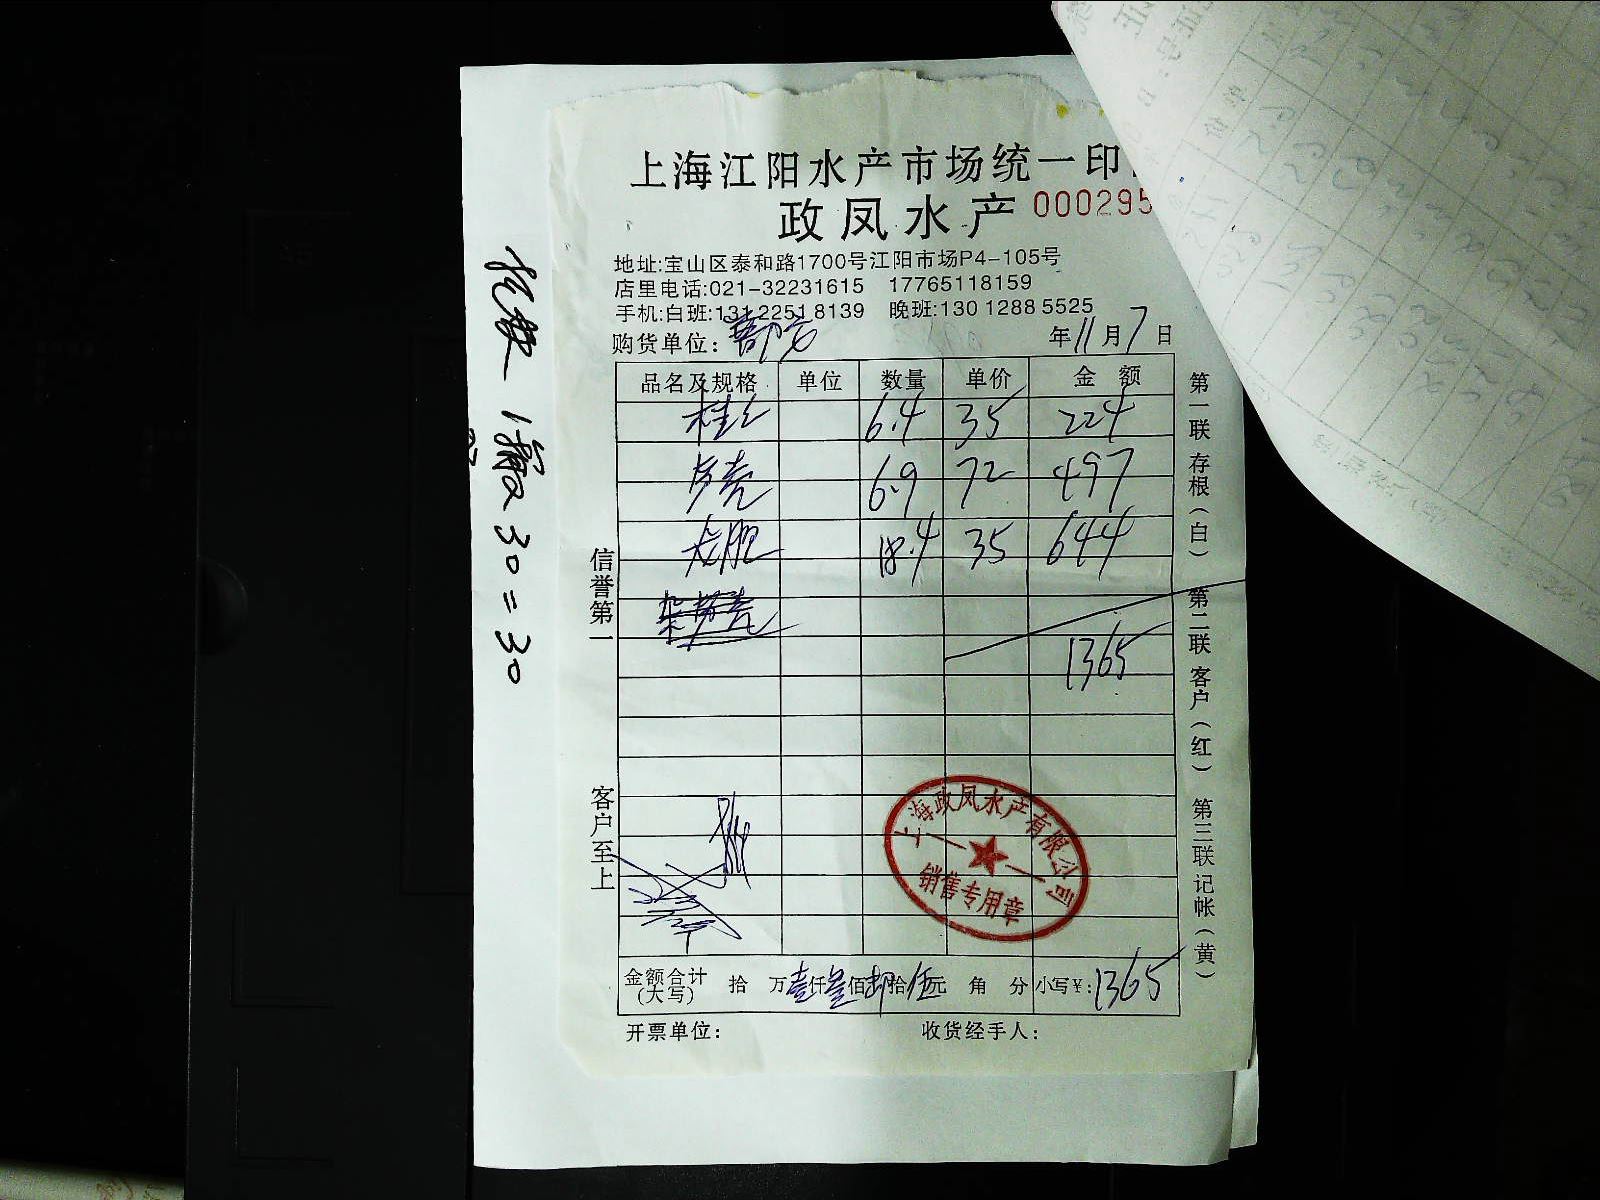 上海江阳水产市场统一印
政凤水产 000295
地址:宝山区泰和路1700号江阳市场P4-105号
店里电话:021-32231615 17765118159
手机:白班:131 2251 8139 晚班:130 1288 5525
购货单位:
年11月7日
品名及规格 单位 数量 单价 金额
桂 6.4 35 224
6.9 72 497
龙胆 18.4 35 644
1365
金额合计(大写) 拾 万壹仟叁佰陆拾伍元 角 分 小写¥:1365
开票单位: 收货经手人:
信誉第一
客户至上
第一联 存根(白)
第二联 客户(红)
第三联 记帐(黄)
上海政凤水产有限公司
销售专用章
30=30